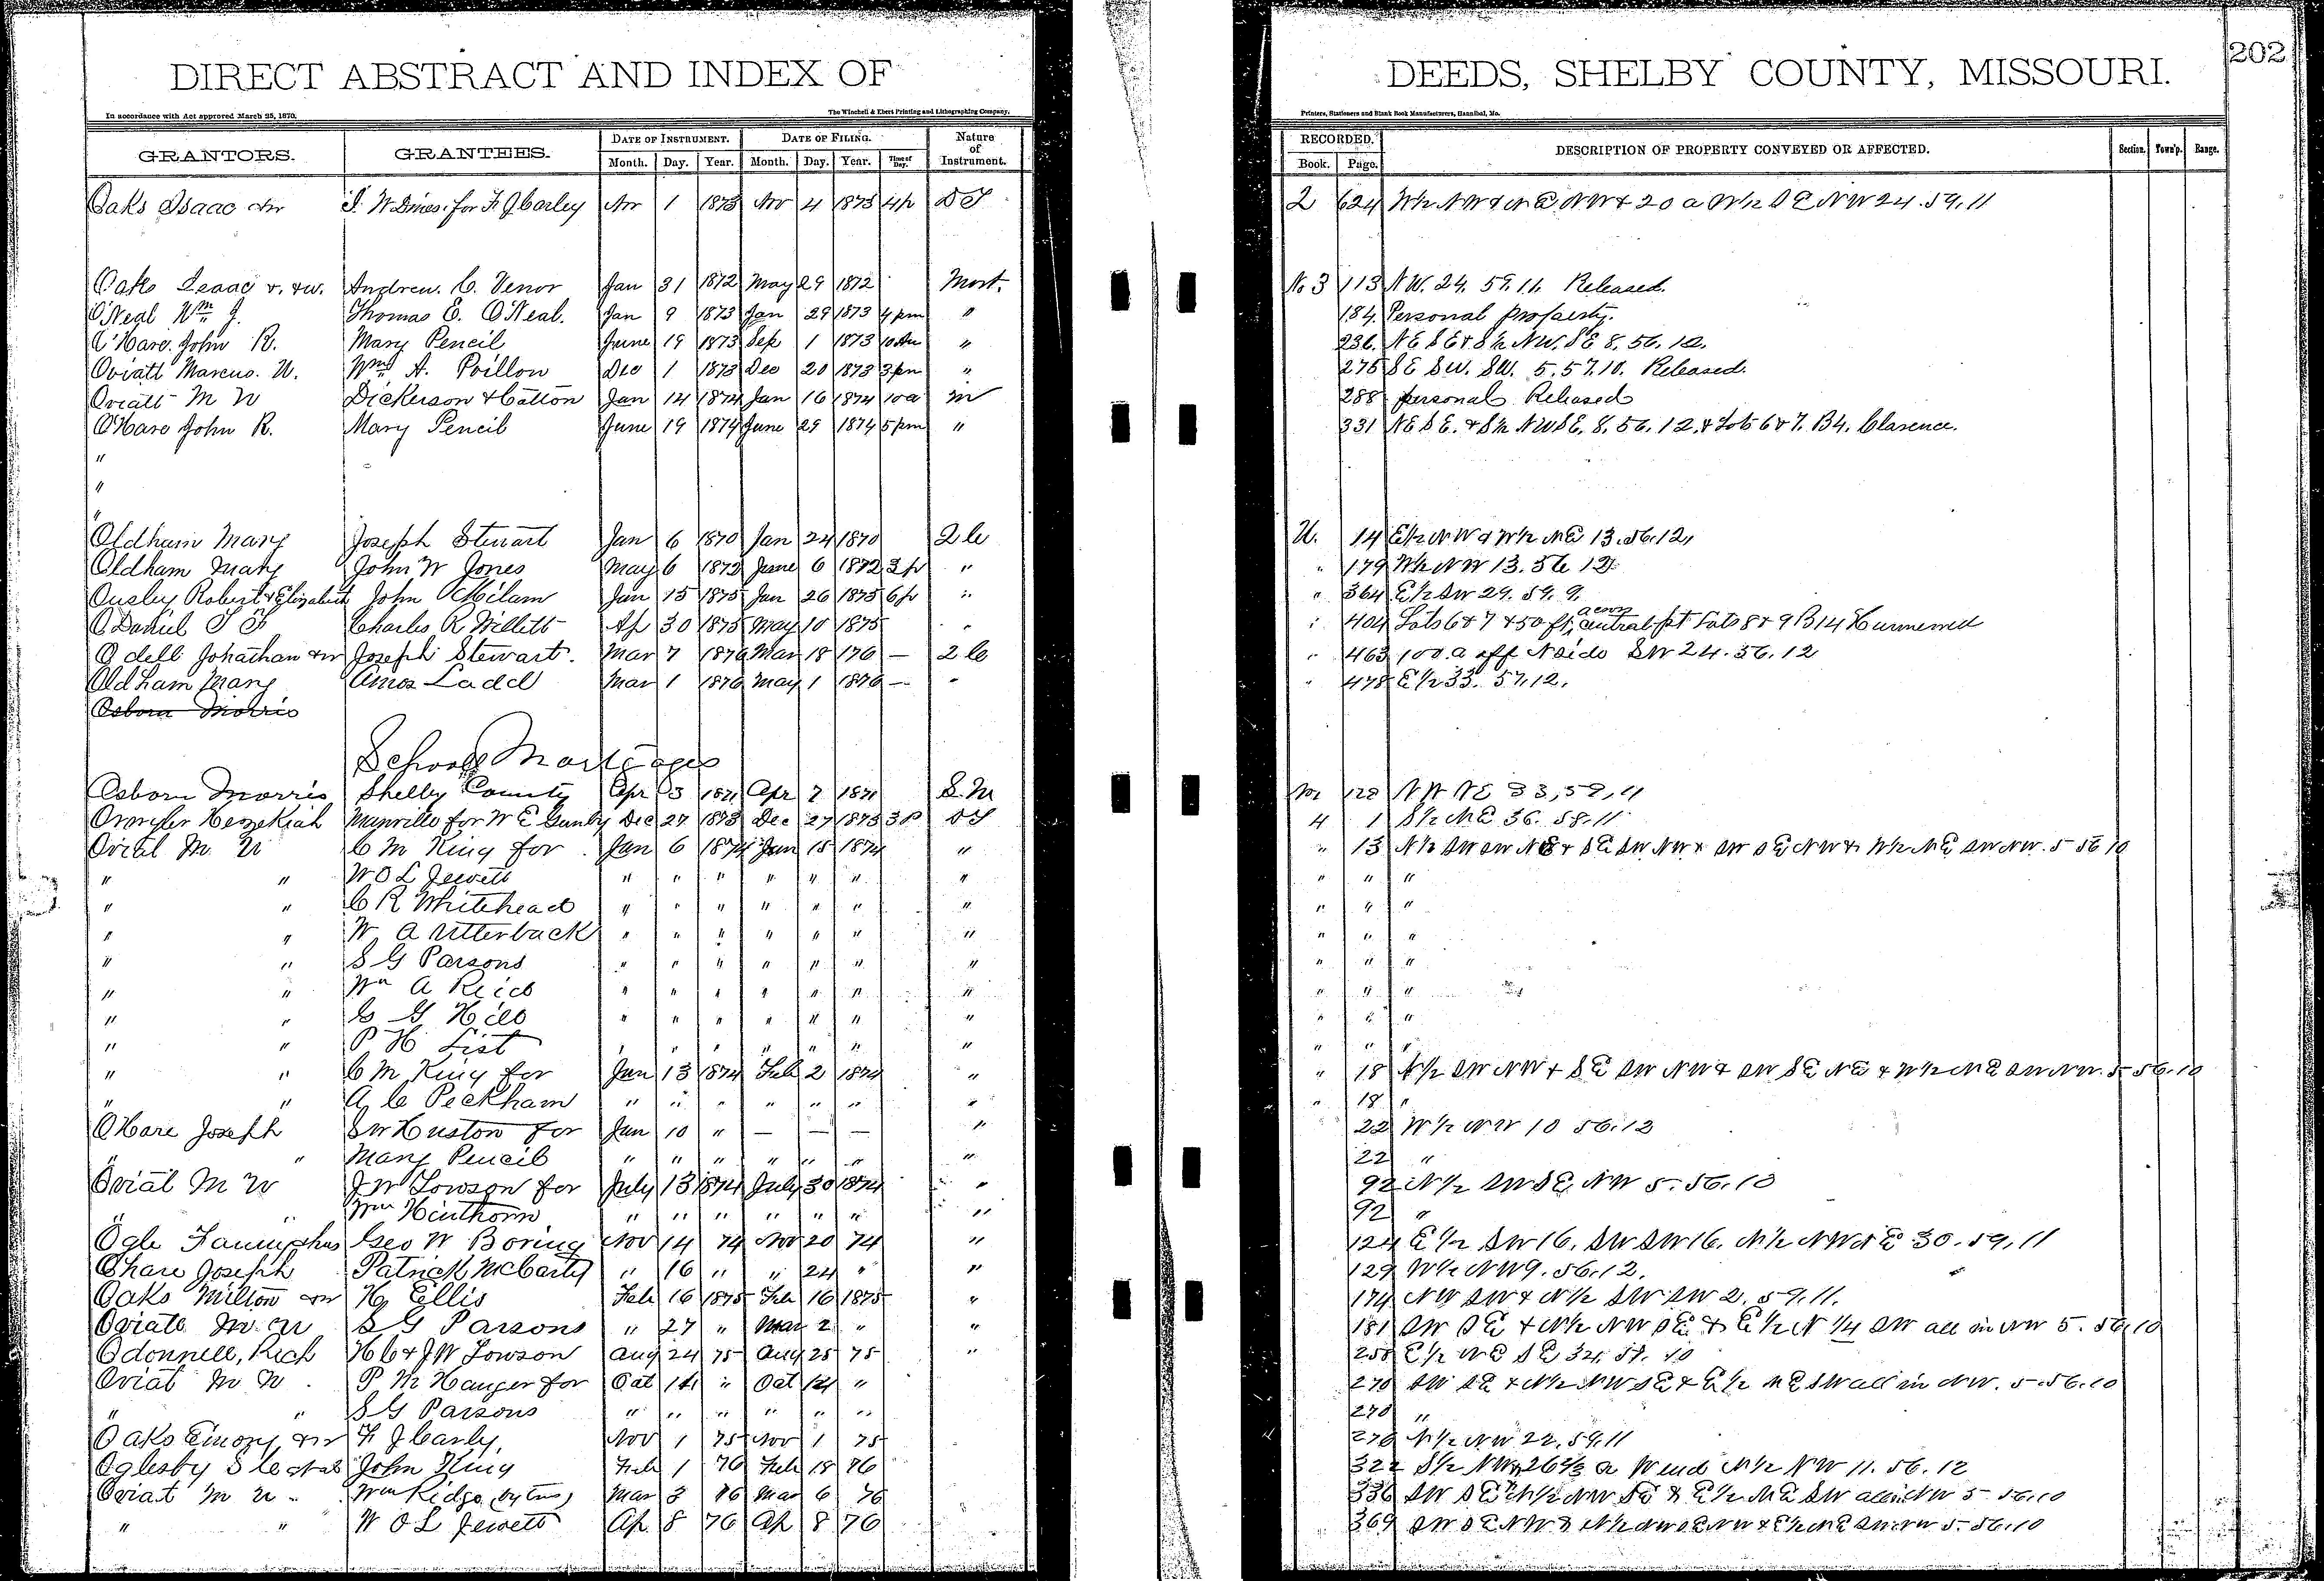 DIRECT ABSTRACT AND INDEX OF DEEDS, SHELBY COUNTY, MISSOURI. 202
In accordance with Act approved March 25, 1870. The Winchell & Ebert Printing and Lithographing Company, Printers, Stationers and Blank Book Manufacturers, Hannibal, Mo.
GRANTORS. GRANTEES. DATE OF INSTRUMENT. DATE OF FILING. Nature of Instrument. RECORDED. DESCRIPTION OF PROPERTY CONVEYED OR AFFECTED. Section. Town'p. Range.
Month. Day. Year. Month. Day. Year. Time of Day. Book. Page.
Oaks Isaac for F. J Carley Nov 1 1873 Nov 4 1873 4p DT 2 624 W½ NW & NE NW & 20 a W½ SE NW 24. 59. 11
Oaks Isaac v. &w. Andrew. C. Venor Jan 31 1872 May 29 1872 Mort. No 3 113 NW. 24. 59. 11. Released.
O'Neal Wm J. Thomas E. O'Neal. Jan 9 1873 Jan 29 1873 4 pm " 184. Personal property.
O'Hare. John R. Mary Pencil June 19 1873 Sep 1 1873 10 Am " 236. NE SE & S½ NW. SE 8. 56. 12.
Oviatt Marcus. W. Wm A. Poillon Dec 1 1873 Dec 20 1873 3 pm " 275 SE SW. SW. 5. 57. 10. Released.
Oviatt M W Dickerson & Catton Jan 14 1874 Jan 16 1874 10 a m 288 personal Released
O'Hare John R. Mary Pencil June 19 1874 June 29 1874 5 pm " 331 NE SE. & S½ NW SE. 8. 56. 12. & Lots 6 & 7. B4. Clarence.
"
"
"
Oldham Mary Joseph Stewart Jan 6 1870 Jan 24 1870 2 C U. 14 E½ NW & W½ NE 13. 56. 12,
Oldham Mary John W Jones May 6 1872 June 6 1872 3 p " " 179 W½ NW 13. 56 12
Ousley Robert & Elizabeth John Milam Jan 15 1875 Jan 26 1875 6 p " " 364 E½ SW 29. 59. 9.
O Daniel S F Charles R Willett Ap 30 1875 May 10 1875 " " 404 Lots 6 & 7 & 50 ft central pt Lots 8 & 9 B14 Hunnewell
Odell Johathan &w Joseph Stewart. Mar 7 1876 Mar 18 176 — 2 C " 463 100. a off N side SW 24. 56. 12
Oldham Mary Amos Ladd Mar 1 1876 May 1 1876 — " " 478 E½ 33. 57. 12.
Osborn Morris
School Mortgages
Osborn Morris Shelby County Apr 3 1871 Apr 7 1871 S. M 128 NW NE 33, 58, 11
Hezekiah Manville for W E Gunby Dec 27 1873 Dec 27 1873 3 P DT 4 1 S½ NE 36. 58. 11
Oviat M. W C M King for Jan 6 1874 Jan 15 1874 " " 13 N½ SW SW NE & SE SW NW & SW SE NW & W½ NE SW NW. 5 56 10
" " W O L Jewett " " " " " " " " " "
" " C R Whitehead " " " " " " " " " "
" " W A Utterback " " " " " " " " " "
" " S G Parsons " " " " " " " " " "
" " Wm A Reid " " " " " " " " " "
" " C G Hill " " " " " " " " " "
" " P H List " " " " " " " " " "
" " C M King for Jan 13 1874 Feb 2 1874 " " 18 N½ SW NW & SE SW NW & SW SE NE & W½ NE SW NW. 5 56. 10
" " A C Peckham " " " " " " " " 18 "
O'Hare Joseph S W Huston for Jan 10 " — — — " 22 W½ NW 10 56. 12
" " Mary Pencil " " " " " " " 22 "
Oviat M W J W Lowson for July 13 1874 July 30 1874 " 92 N½ SW SE NW 5. 56. 10
" " Wm Hinthorn " " " " " " " 92 "
Ogle Geo W Boring Nov 14 74 Nov 20 74 " 124 E½ SW 16. SW SW 16. N½ NW SE 30. 59. 11
Ohare Joseph Patrick McCarty " 16 " " 24 " " 129 W½ NW 9. 56. 12.
Oaks Milton &w H Ellis Feb 16 1875 Feb 16 1875 " 174 NW SW & N½ SW SW 2. 59. 11.
Oviatt M. W S G Parsons " 27 " Mar 2 " " 181 SW SE & N½ NW SE & E½ N ¼ SW all in NW 5. 56. 10
Odonnell, Rich H C & J W Lowson Aug 24 75 Aug 25 75 " 258 E½ NE SE 34. 57. 10
Oviat M W. P M Hanger for Oct 14 " Oct 14 " 270 SW SE & N½ NW SE & E½ NE SW all in NW. 5. 56. 10
" " S G Parsons " " " " " " 270 "
Oaks Emory &w F J Carly, Nov 1 75 Nov 1 75 276 N½ NW 22. 59. 11
Oglesby John King Feb 1 76 Feb 18 76 322 S½ NW & 26⅔ a W end N½ NW 11. 56. 12
Oviat M W. Wm Ridge Mar 3 76 Mar 6 76 336 SW SE & N½ NW SE & E½ NE SW all in NW 5 56. 10
" " W O L Jewett Ap 8 76 Ap 8 76 369 SW SE NW & N½ NW SE NW & E½ NE SW NW 5. 56. 10